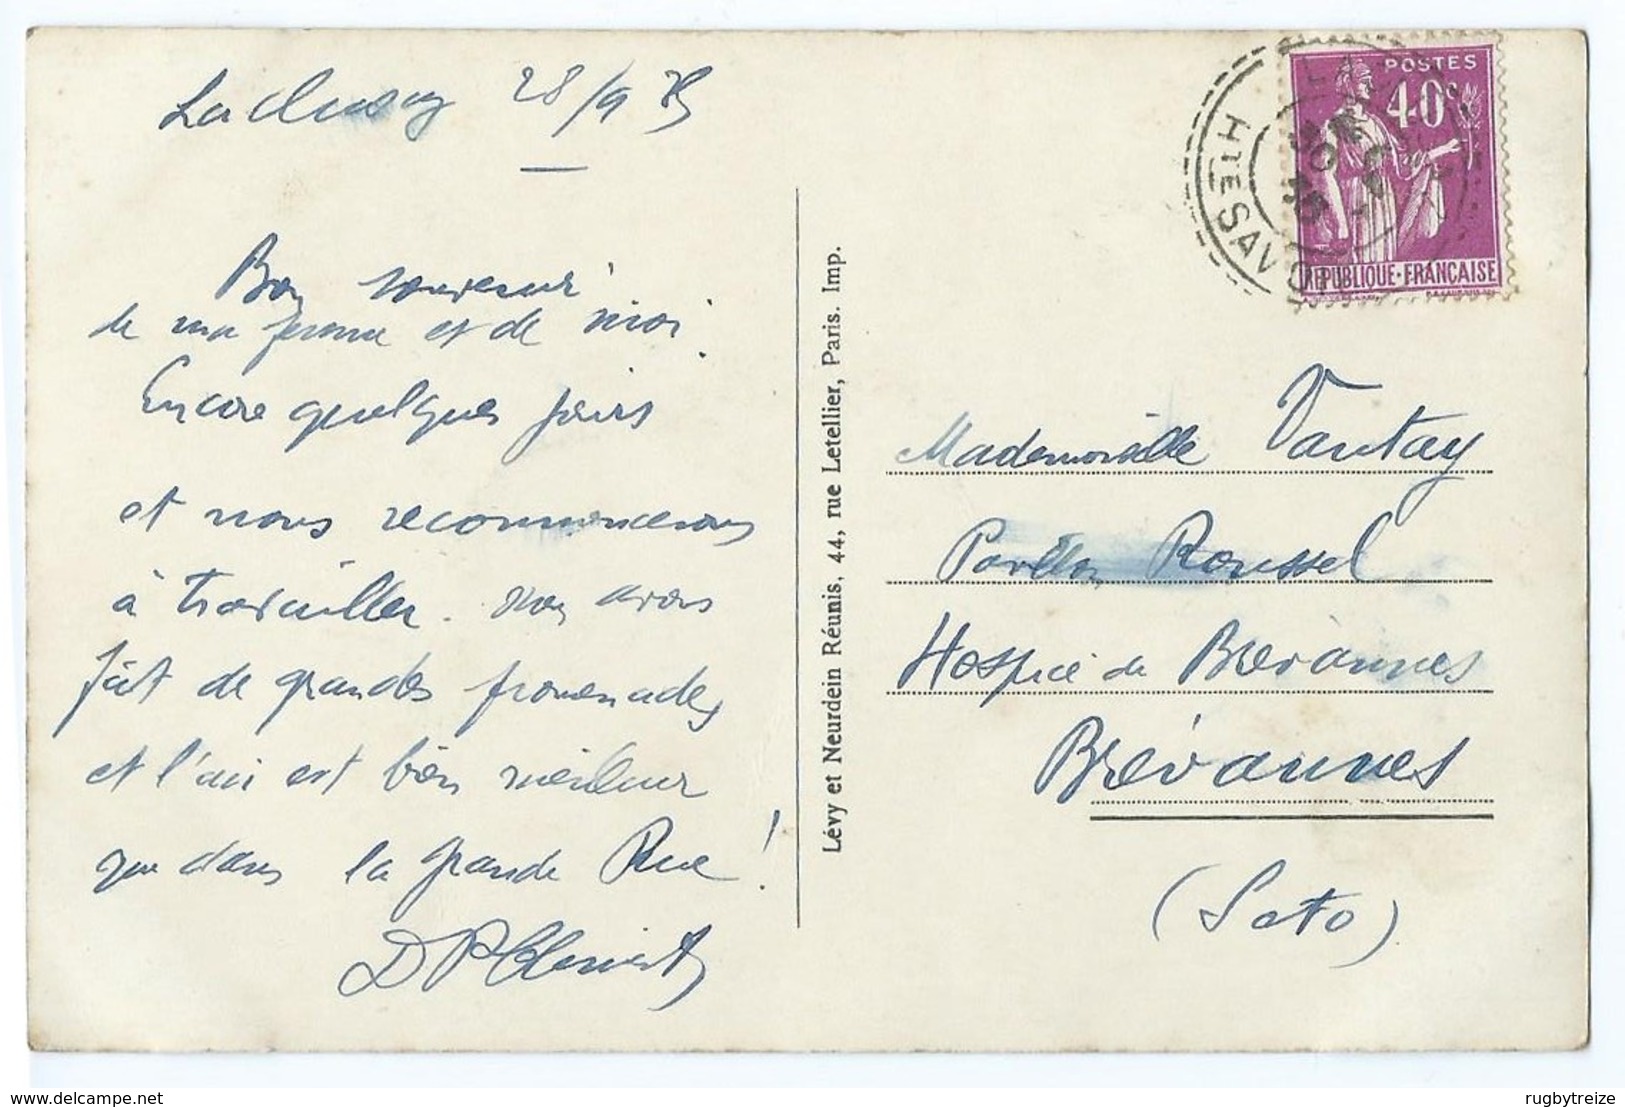 La Clusaz 28/9 35
Bon souvenir
de ma femme et de moi.
Encore quelques jours
et nous recommencerons
à travailler. Nous avons
fait de grandes promenades
et l'air est bien meilleur
que dans la grande Rue !
Lévy et Neurdein Réunis, 44, rue Letellier, Paris. Imp.
POSTES
40c
RÉPUBLIQUE·FRANÇAISE
HTE SAVOIE
30
35
Mademoiselle Vautay
Pavillon Roussel
Hospice de Brévannes
Brévannes
(S et O)
www.delcampe.net
rugbytreize